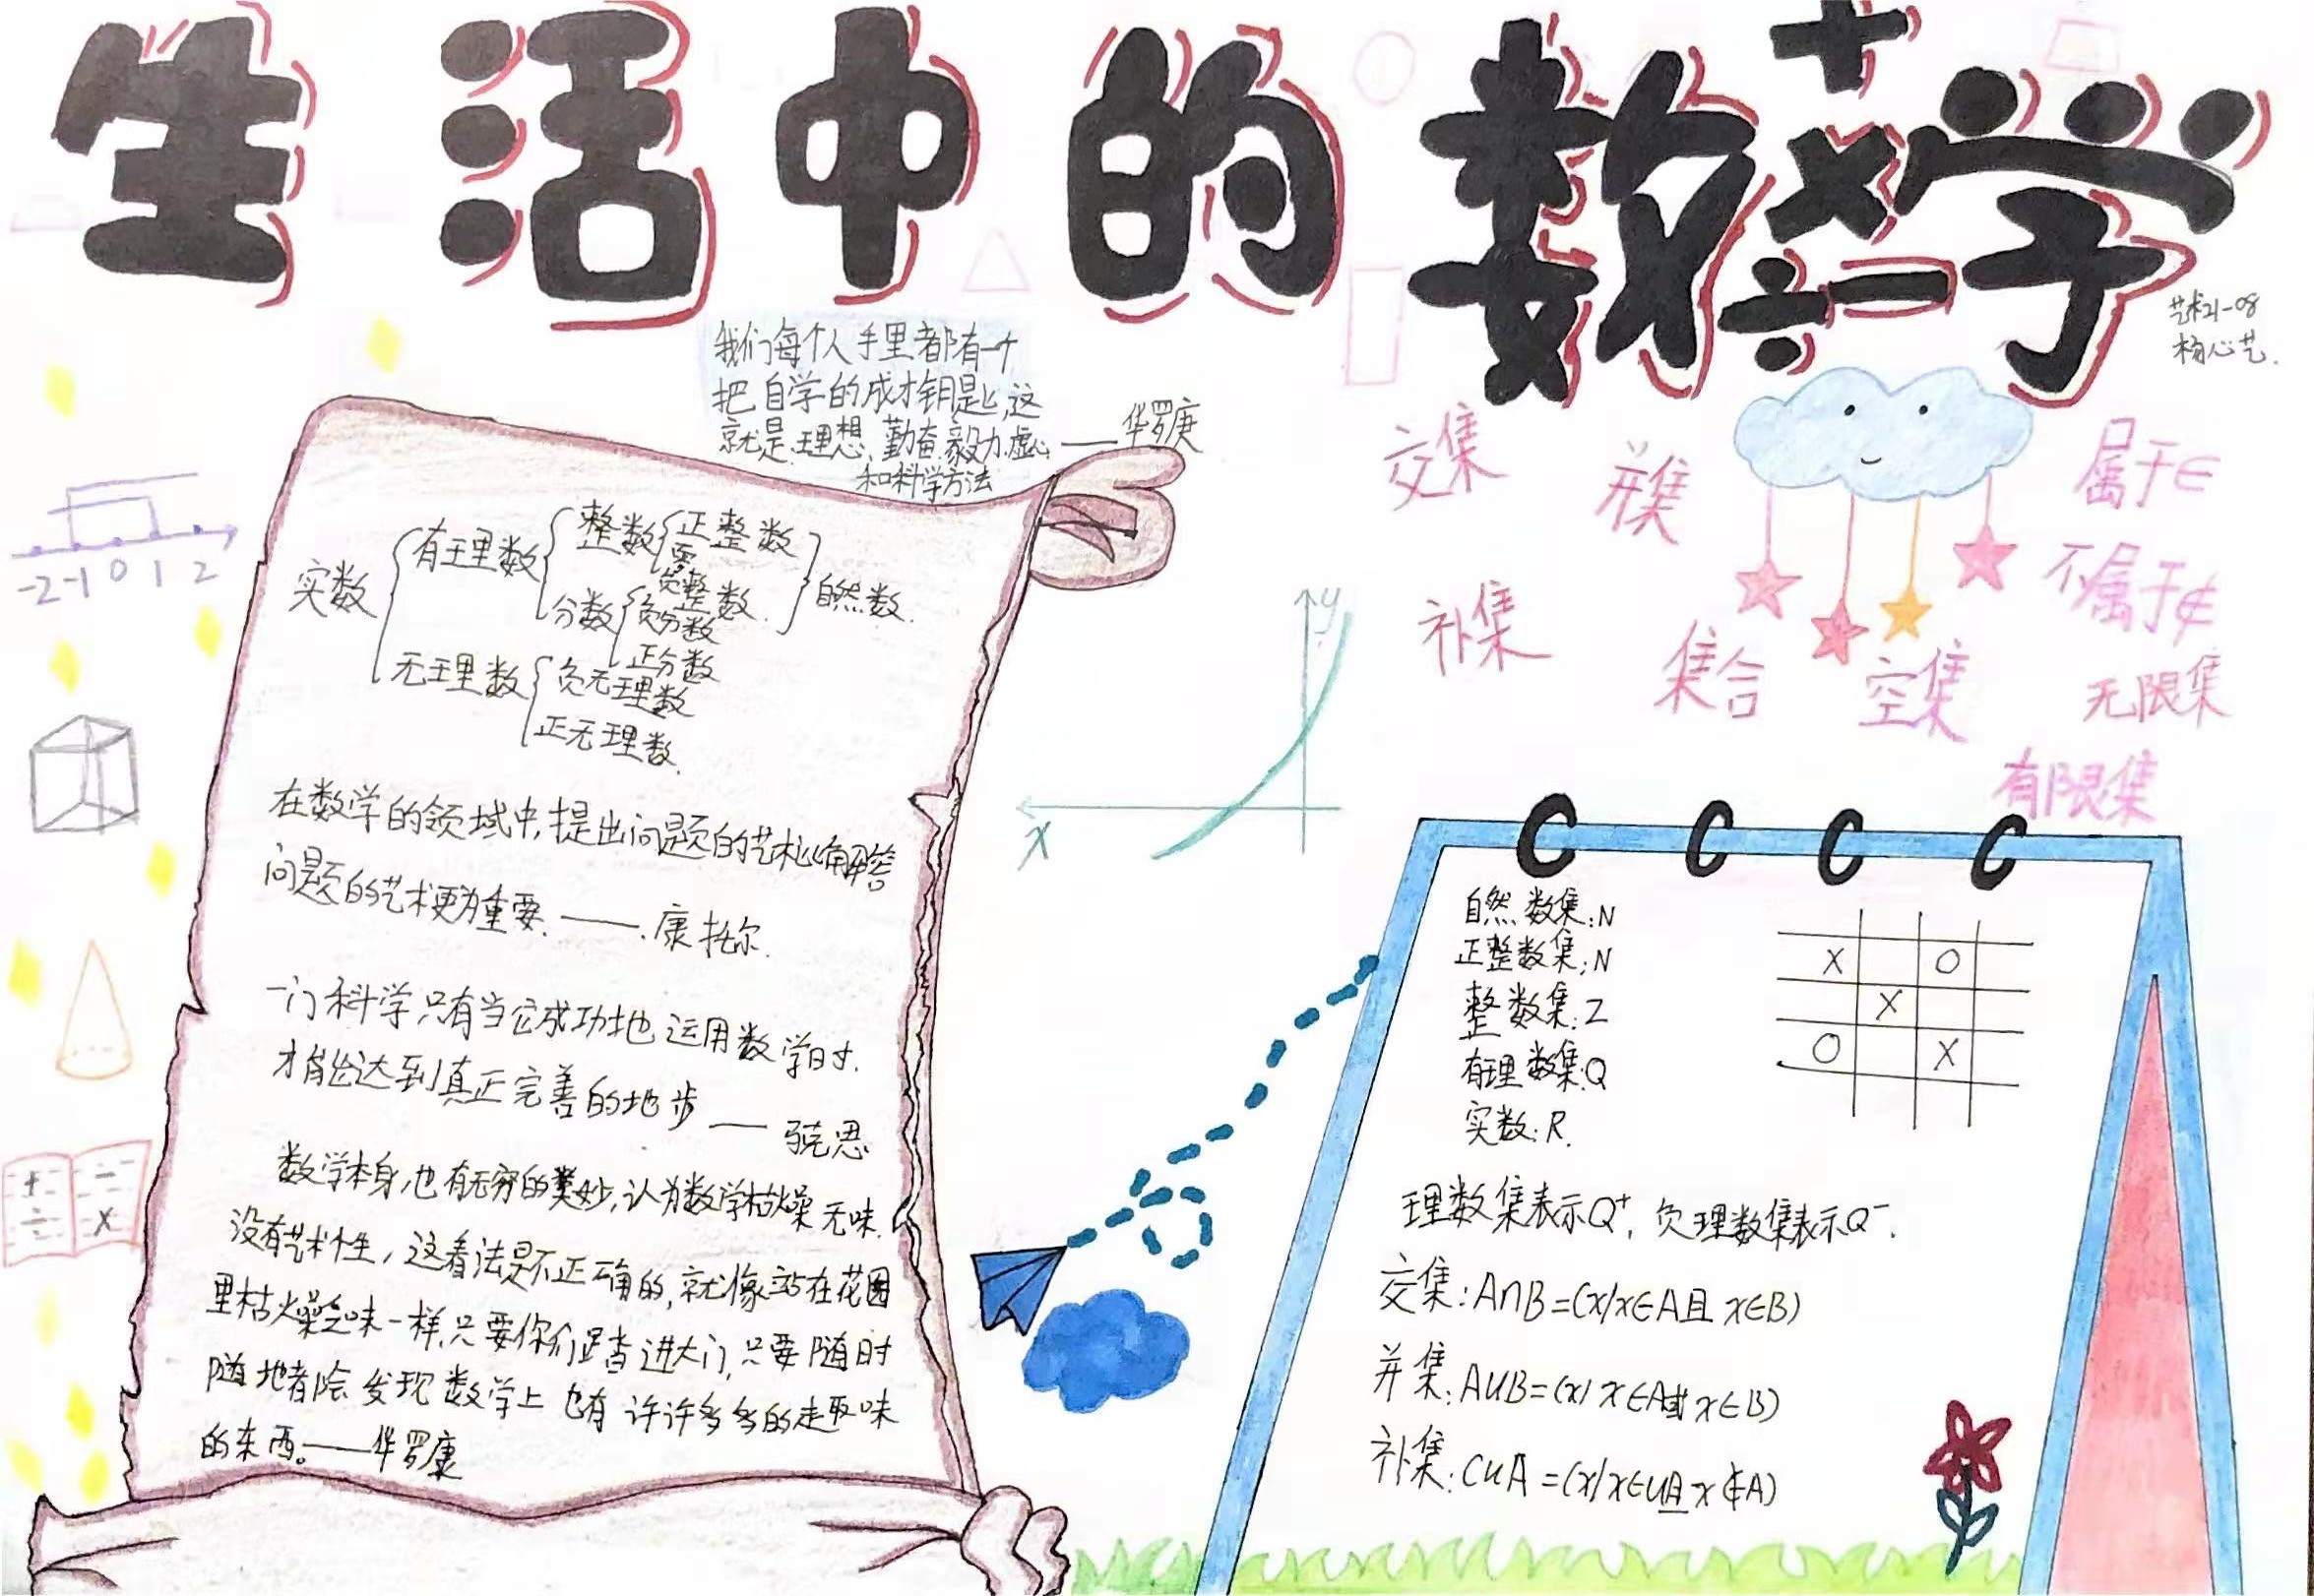 生活中的数学
+
×
÷
−
艺术21-08
杨心艺.
我们每个人手里都有一个
把自学的成才钥匙,这
就是:理想、勤奋、毅力、虚心
和科学方法
——华罗庚
实数
有理数
整数
正整数
零
负整数
自然数.
分数
负分数
正分数
无理数
负无理数
正无理数.
在数学的领域中,提出问题的艺术比解答
问题的艺术更为重要. ——.康托尔.
一门科学只有当它成功地运用数学时.
才能达到真正完善的地步 ——
数学本身,也有无穷的美妙,认为数学枯燥无味.
没有艺术性,这看法是不正确的,就像站在花园
里枯燥乏味一样,只要你们踏进大门,只要随时
随地都会发现数学上也有许许多多的趣味
的东西。——华罗康
-2 -1 0 1 2
+ −
÷ ×
y
x
交集
并集
属于∈
不属于∉
补集
集合
空集
无限集
有限集
自然数集:N
正整数集:N
整数集:Z
有理数集:Q
实数:R.
X O
X
O X
理数集表示Q⁺,负理数集表示Q⁻.
交集:A∩B=(x/x∈A且x∈B)
并集:A∪B=(x/x∈A或x∈B)
补集:CuA=(x/x∈U且x∉A)